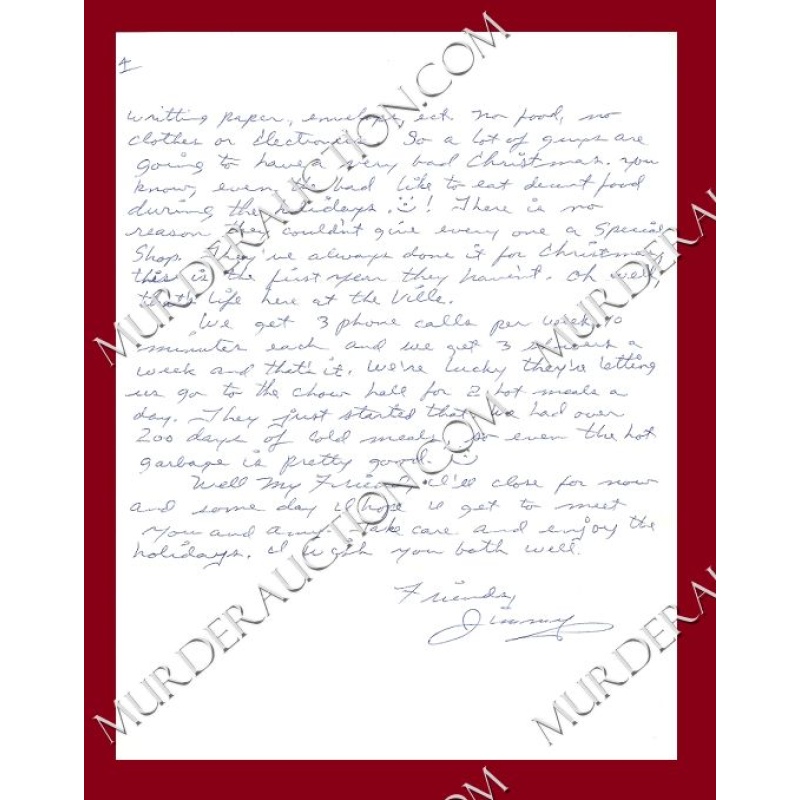 4
writting paper, envelops, ect. no food, no
clothes or electronics. So a lot of guys are
going to have a very bad Christmas. You
know, even the bad like to eat decent food
during the holidays. ! There is no
reason they couldn't give every one a Special
Shop. They've always done it for Christmas,
this is the first year they haven't. Oh well,
that's life here at the Ville.
We get 3 phone calls per week, 10
minutes each and we get 3 showers a
week and that's it. We're lucky they're letting
us go to the chow hall for 2 hot meals a
day. They just started that, we had over
200 days of cold meals, so even the hot
garbage is pretty good.
Well My Friend, I'll close for now
and some day I hope to get to meet
you and Take care and enjoy the
holidays. I wish you both well.
Friends,
Jimmy
MURDERAUCTION.COM
MURDERAUCTION.COM
MURDERAUCTION.COM
MURDERAUCTION.COM